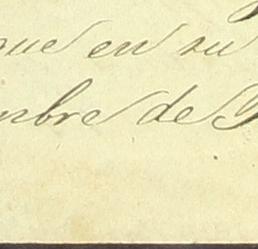 que en su
mbre de